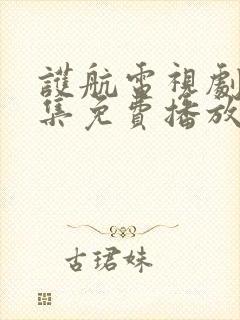 護航電視劇
集免費播放
古珺妹